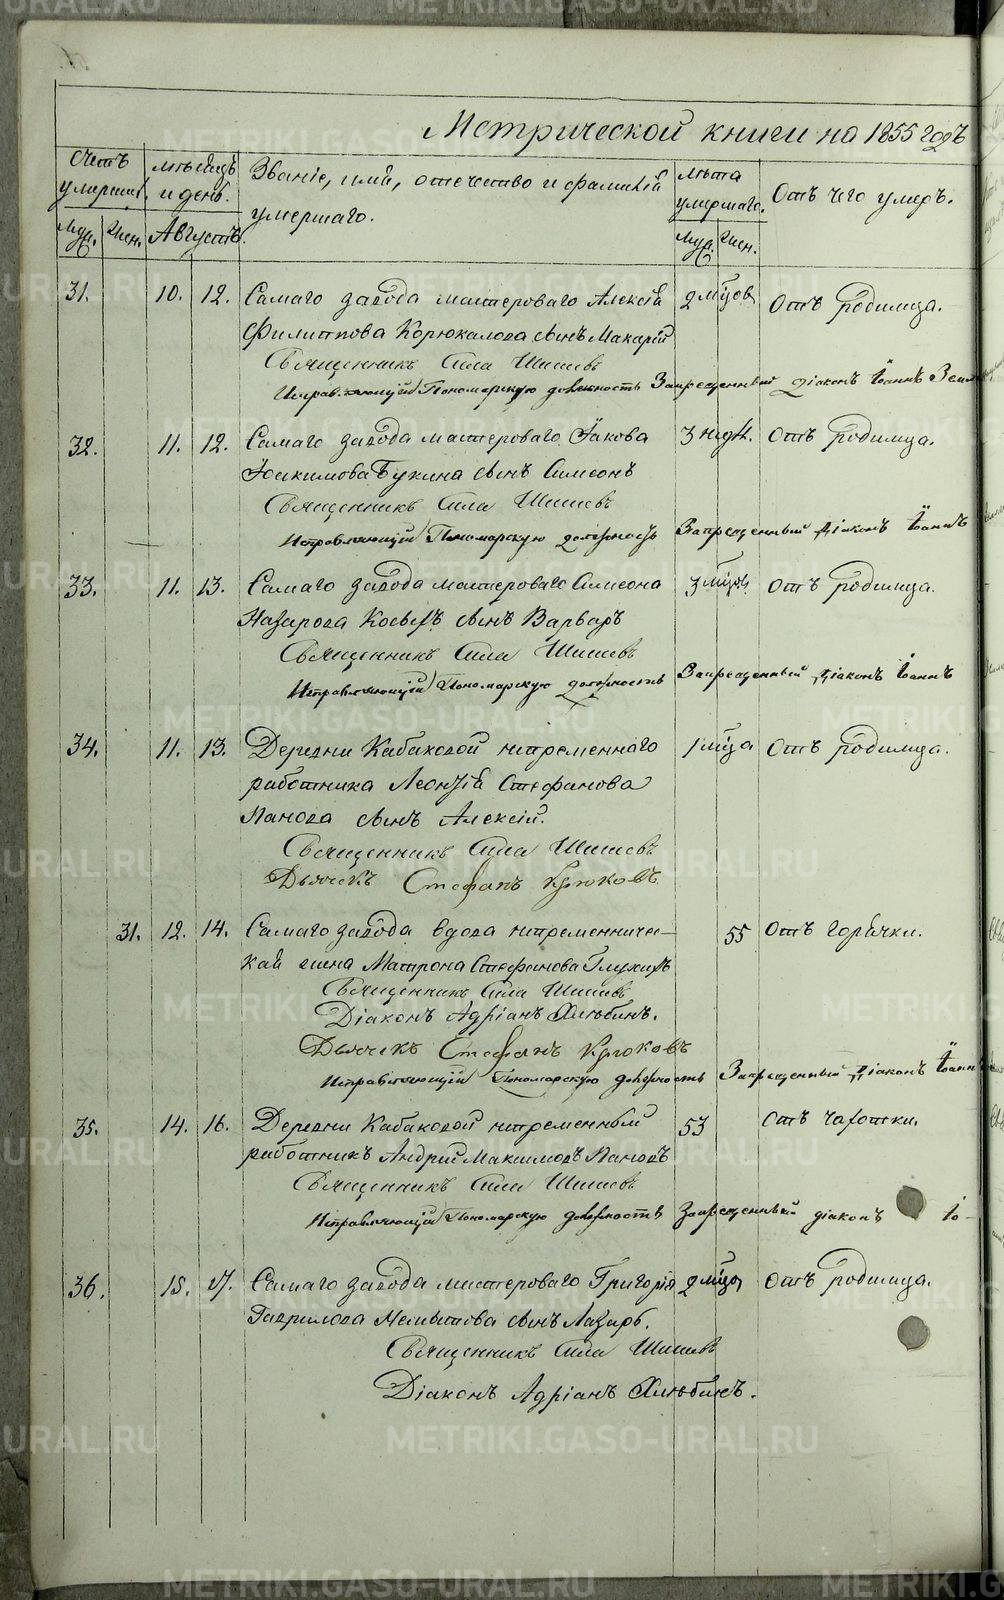 Метрической книги на 1855 годъ
Счетъ умерших.
мѣсяцъ и день.
Званіе, имя, отечество и фамилія
умершаго.
лѣта умершаго.
Отъ чего умеръ.
Муж. Жен. Августъ. Муж. Жен.
31. 10. 12. Самаго завода мастероваго Алексѣя 2 мѣцов Отъ родимца.
Филиппова Корюкалова сынъ Макарій
Священникъ Сила Шишевъ
Исправляющій Пономарскую должность Запрещенный Діаконъ Іоаннъ
32. 11. 12. Самаго завода мастероваго Іакова 3 недѣ. Отъ родимца.
Іоакимова Букина сынъ Симеонъ
Священникъ Сила Шишевъ
Исправляющій Пономарскую должность Запрещенный Діаконъ Іоаннъ
33. 11. 13. Самаго завода мастероваго Симеона 3 мѣцов. Отъ родимца.
Назарова Косыхъ сынъ Варваръ
Священникъ Сила Шишевъ
Исправляющій Пономарскую должность Запрещенный Діаконъ Іоаннъ
34. 11. 13. Деревни Кабаковой непременнаго 1 мѣца Отъ родимца.
работника Леонтія Стефанова
Панова сынъ Алексій.
Священникъ Сила Шишевъ
Дьячекъ Стефанъ Крюковъ
31. 12. 14. Самаго завода вдова непременниче- 55 Отъ горячки.
кая жена Матрона Стефанова Глухихъ
Священникъ Сила Шишевъ
Діаконъ Адріанъ Хлѣбинъ.
Дьячекъ Стефанъ Крюковъ
Исправляющій Пономарскую должность Запрещенный Діаконъ Іоаннъ
35. 14. 16. Деревни Кабаковой непременный 53 Отъ чахотки.
работникъ Андрей Максимовъ Пановъ
Священникъ Сила Шишевъ
Исправляющій Пономарскую должность Запрещенный діаконъ Іо-
36. 15. 17. Самаго завода мастероваго Григорія 2 мѣца Отъ родимца.
Гаврилова сынъ Лазарь.
Священникъ Сила Шишевъ
Діаконъ Адріанъ Хлѣбинъ.
METRIKI.GASO-URAL.RU